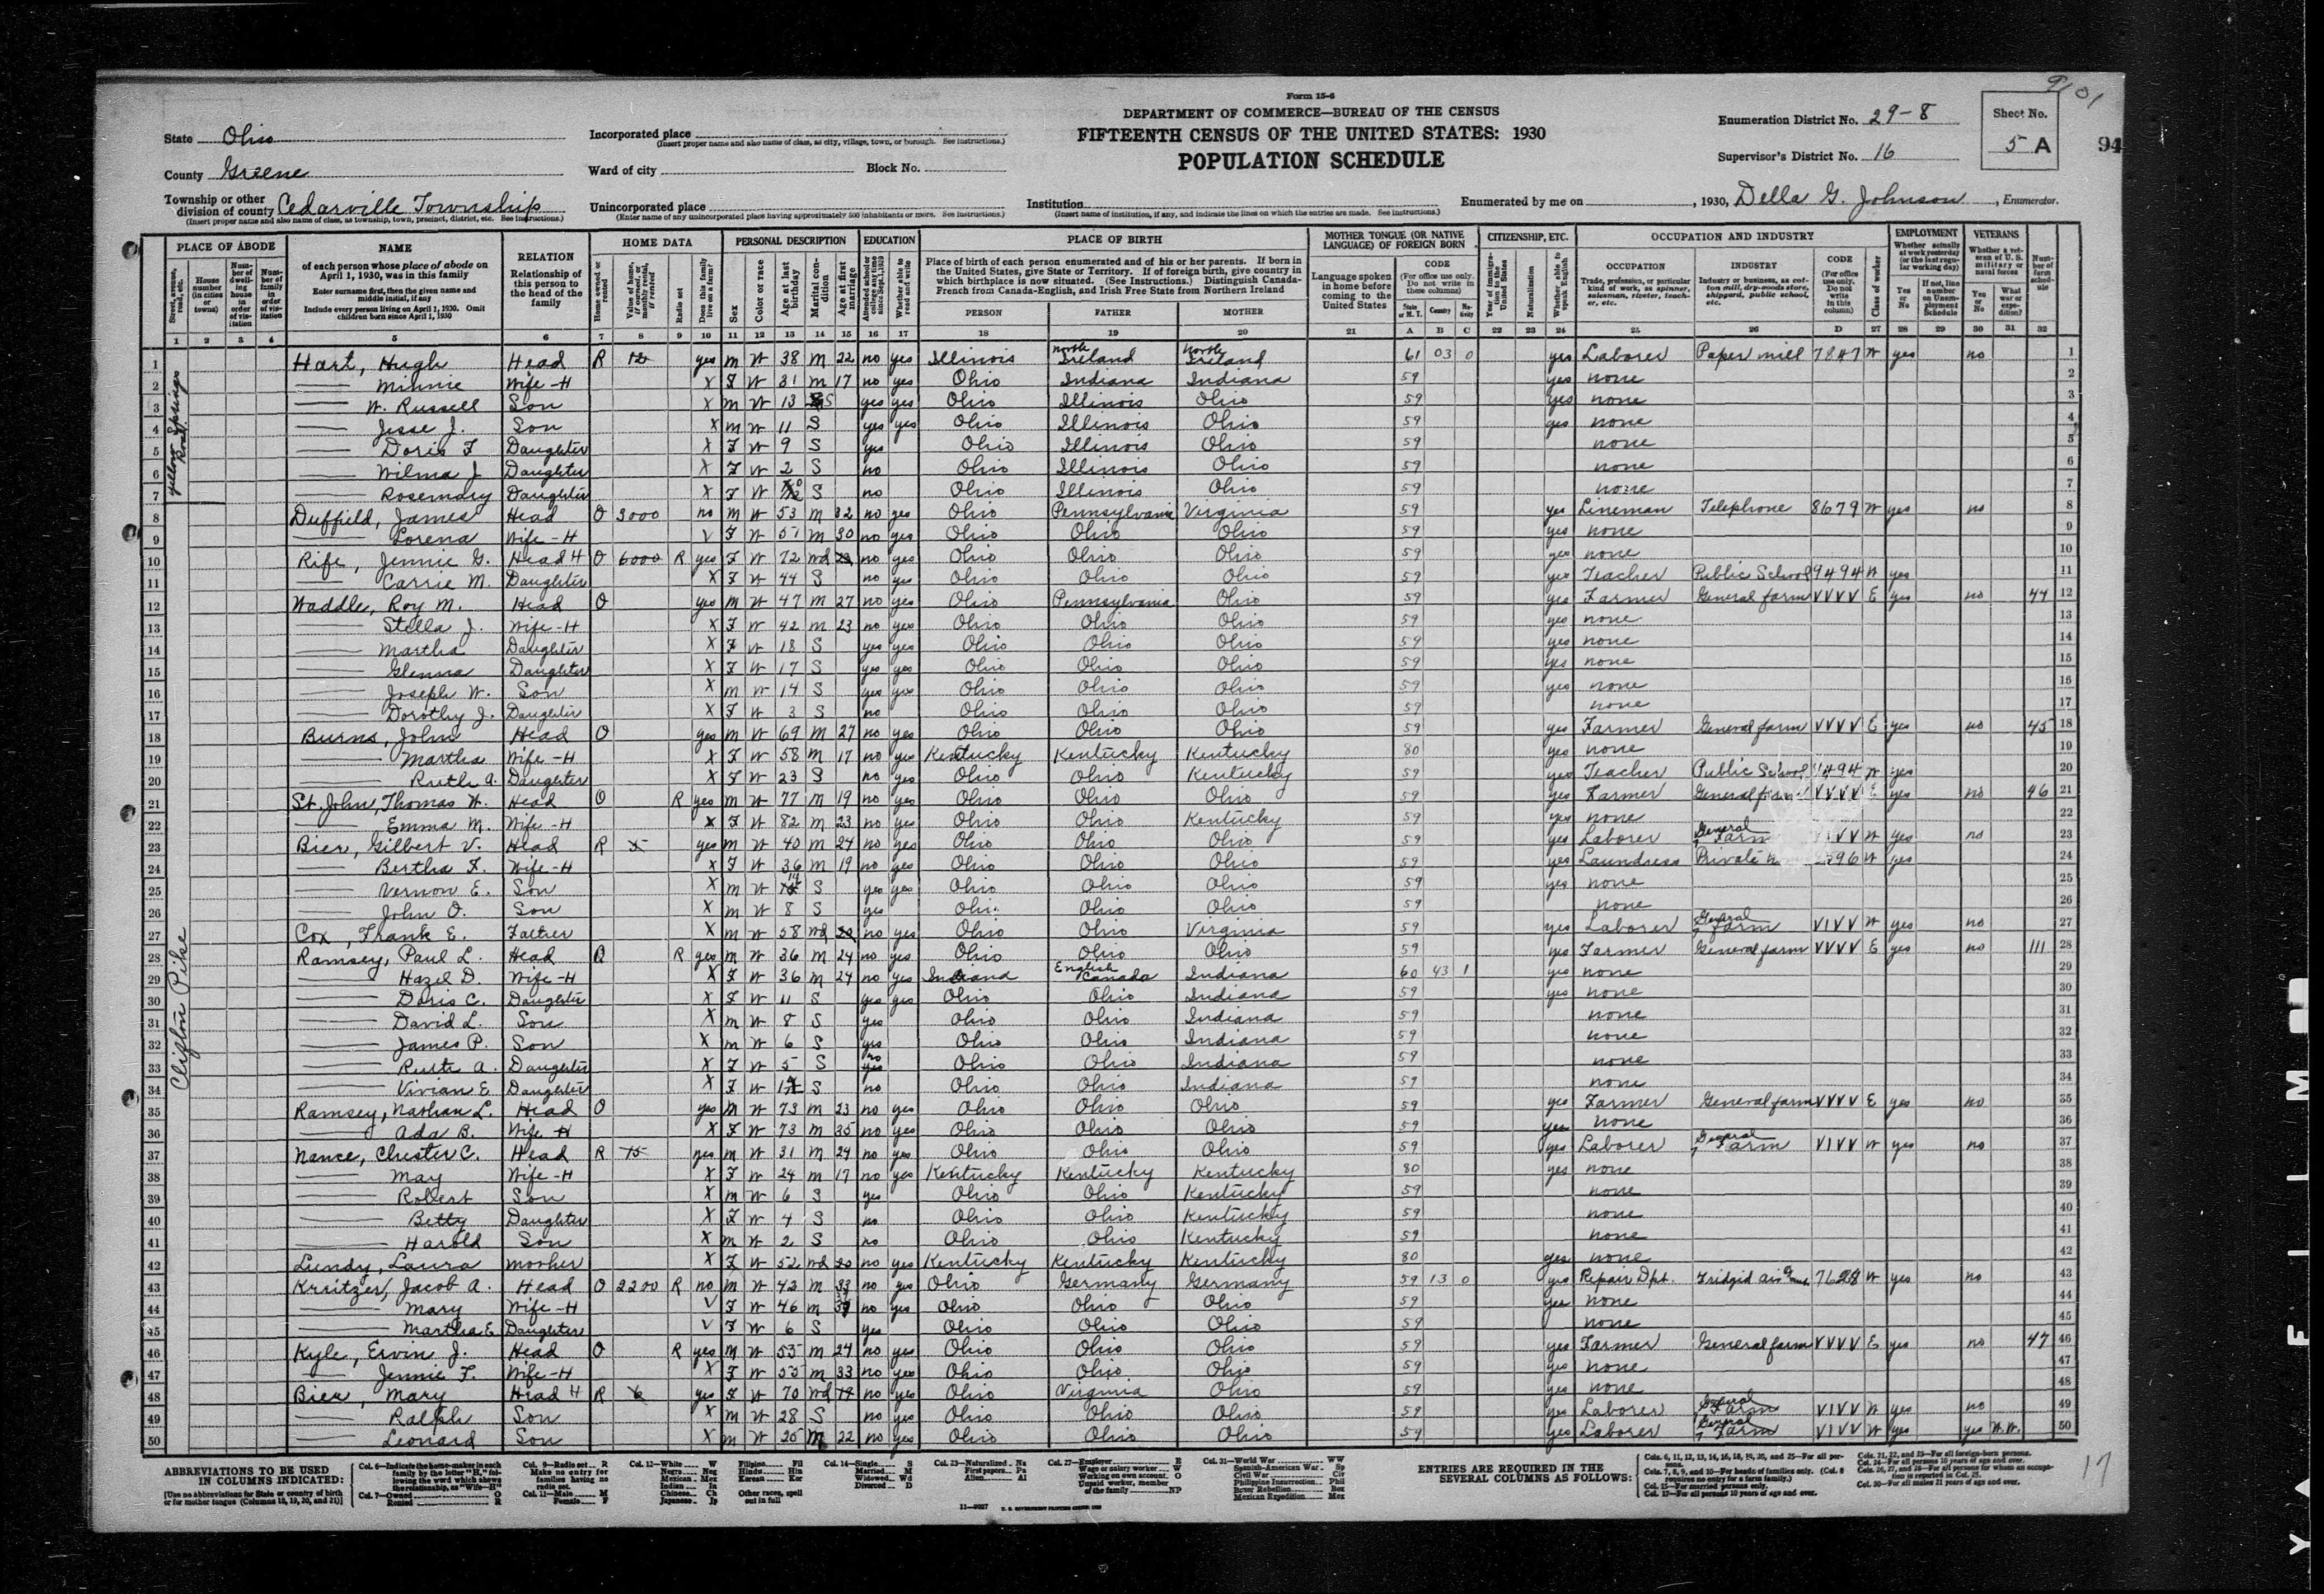 9/01
Form 15-6
DEPARTMENT OF COMMERCE—BUREAU OF THE CENSUS
FIFTEENTH CENSUS OF THE UNITED STATES: 1930
POPULATION SCHEDULE
State Ohio
County Greene
Township or other division of county Cedarville Township
(Insert proper name and also name of class, as township, town, precinct, district, etc. See instructions.)
Incorporated place
(Insert proper name and also name of class, as city, village, town, or borough. See instructions.)
Ward of city Block No.
Unincorporated place
(Enter name of any unincorporated place having approximately 500 inhabitants or more. See instructions.)
Institution
(Insert name of institution, if any, and indicate the lines on which the entries are made. See instructions.)
Enumeration District No. 29-8
Supervisor's District No. 16
Sheet No. 5 A
94
Enumerated by me on , 1930, Della G. Johnson, Enumerator.
PLACE OF ABODE NAME RELATION HOME DATA PERSONAL DESCRIPTION EDUCATION PLACE OF BIRTH MOTHER TONGUE (OR NATIVE LANGUAGE) OF FOREIGN BORN CITIZENSHIP, ETC. OCCUPATION AND INDUSTRY EMPLOYMENT VETERANS
1 2 3 4 5 6 7 8 9 10 11 12 13 14 15 16 17 18 19 20 21 A B C 22 23 24 25 26 D 27 28 29 30 31 32
Yellow Springs Road
1 Hart, Hugh Head R 12 yes M W 38 M 22 no yes Illinois North Ireland North Ireland 61 03 0 yes Laborer Paper mill 7847 W yes no 1
2 Minnie Wife-H X F W 31 M 17 no yes Ohio Indiana Indiana 59 yes none 2
3 W. Russell Son X M W 13 S yes yes Ohio Illinois Ohio 59 yes none 3
4 Jesse J. Son X M W 11 S yes yes Ohio Illinois Ohio 59 yes none 4
5 Doris F Daughter X F W 9 S yes Ohio Illinois Ohio 59 none 5
6 Wilma J Daughter X F W 2 S no Ohio Illinois Ohio 59 none 6
7 Rosemary Daughter X F W S no Ohio Illinois Ohio 59 none 7
8 Duffield, James Head O 3000 no M W 53 M 32 no yes Ohio Pennsylvania Virginia 59 yes Lineman Telephone 8679 W yes no 8
9 Lorena Wife-H V F W 51 M 30 no yes Ohio Ohio Ohio 59 yes none 9
10 Rife, Jennie G. Head H O 6000 R yes F W 72 Wd no yes Ohio Ohio Ohio 59 yes none 10
11 Carrie M. Daughter X F W 44 S no yes Ohio Ohio Ohio 59 yes Teacher Public School 9494 W yes 11
12 Waddle, Roy M. Head O yes M W 47 M 27 no yes Ohio Pennsylvania Ohio 59 yes Farmer General farm VVVV E yes no 44 12
13 Stella J. Wife-H X F W 42 M 23 no yes Ohio Ohio Ohio 59 yes none 13
14 Martha Daughter X F W 18 S yes yes Ohio Ohio Ohio 59 yes none 14
15 Glenna Daughter X F W 17 S yes yes Ohio Ohio Ohio 59 yes none 15
16 Joseph W. Son X M W 14 S yes yes Ohio Ohio Ohio 59 yes none 16
17 Dorothy J. Daughter X F W 3 S no Ohio Ohio Ohio 59 none 17
18 Burns, John Head O yes M W 69 M 27 no yes Ohio Ohio Ohio 59 yes Farmer General farm VVVV E yes no 45 18
19 Martha Wife-H X F W 58 M 17 no yes Kentucky Kentucky Kentucky 80 yes none 19
20 Ruth A. Daughter X F W 23 S no yes Ohio Ohio Kentucky 59 yes Teacher Public School 9494 W yes 20
21 St. John, Thomas W. Head O R yes M W 77 M 19 no yes Ohio Ohio Ohio 59 yes Farmer General farm VVVV E yes no 46 21
22 Emma M. Wife-H X F W 82 M 23 no yes Ohio Ohio Kentucky 59 yes none 22
23 Bier, Gilbert V. Head R 5 yes M W 40 M 24 no yes Ohio Ohio Ohio 59 yes Laborer General Farm VIVV W yes no 23
24 Bertha F. Wife-H X F W 36 M 19 no yes Ohio Ohio Ohio 59 yes Laundress Private W yes 24
25 Vernon E. Son X M W 14 S yes yes Ohio Ohio Ohio 59 yes none 25
26 John O. Son X M W 8 S yes Ohio Ohio Ohio 59 none 26
27 Cox, Frank E. Father X M W 58 Wd no yes Ohio Ohio Virginia 59 yes Laborer General farm VIVV W yes no 27
Clifton Pike
28 Ramsey, Paul L. Head O R yes M W 36 M 24 no yes Ohio Ohio Ohio 59 yes Farmer General farm VVVV E yes no 111 28
29 Hazel D. Wife-H X F W 36 M 24 no yes Indiana English Canada Indiana 60 43 1 yes none 29
30 Doris C. Daughter X F W 11 S yes yes Ohio Ohio Indiana 59 yes none 30
31 David L. Son X M W 8 S yes Ohio Ohio Indiana 59 none 31
32 James P. Son X M W 6 S yes Ohio Ohio Indiana 59 none 32
33 Ruth A. Daughter X F W 5 S no Ohio Ohio Indiana 59 none 33
34 Vivian E Daughter X F W S no Ohio Ohio Indiana 59 none 34
35 Ramsey, Nathan L. Head O yes M W 73 M 23 no yes Ohio Ohio Ohio 59 yes Farmer General farm VVVV E yes no 35
36 Ada B. Wife H X F W 73 M 35 no yes Ohio Ohio Ohio 59 yes none 36
37 Nance, Chester C. Head R 15 yes M W 31 M 24 no yes Ohio Ohio Ohio 59 yes Laborer General Farm VIVV W yes no 37
38 May Wife-H X F W 24 M 17 no yes Kentucky Kentucky Kentucky 80 yes none 38
39 Robert Son X M W 6 S yes Ohio Ohio Kentucky 59 none 39
40 Betty Daughter X F W 4 S no Ohio Ohio Kentucky 59 none 40
41 Harold Son X M W 2 S no Ohio Ohio Kentucky 59 none 41
42 Lundy, Laura Mother X F W 52 Wd 20 no yes Kentucky Kentucky Kentucky 80 yes none 42
43 Kritzer, Jacob A. Head O 2200 R no M W 42 M 33 no yes Ohio Germany Germany 59 13 0 yes Repair Dpt. Fridgid air 7628 W yes no 43
44 Mary Wife-H V F W 46 M no yes Ohio Ohio Ohio 59 yes none 44
45 Martha E Daughter V F W 6 S yes Ohio Ohio Ohio 59 none 45
46 Kyle, Ervin J. Head O R yes M W 53 M 24 no yes Ohio Ohio Ohio 59 yes Farmer General farm VVVV E yes no 47 46
47 Jennie F. Wife-H X F W 55 M 33 no yes Ohio Ohio Ohio 59 yes none 47
48 Bier, Mary Head H R 6 yes F W 70 Wd no yes Ohio Virginia Ohio 59 yes none 48
49 Ralph Son X M W 28 S no yes Ohio Ohio Ohio 59 yes Laborer General Farm VIVV W yes no 49
50 Leonard Son X M W 25 M 22 no yes Ohio Ohio Ohio 59 yes Laborer General Farm VIVV W yes yes W.W. 50
ABBREVIATIONS TO BE USED IN COLUMNS INDICATED:
[Use no abbreviations for State or country of birth or for mother tongue (Columns 18, 19, 20, and 21)]
ENTRIES ARE REQUIRED IN THE SEVERAL COLUMNS AS FOLLOWS:
17